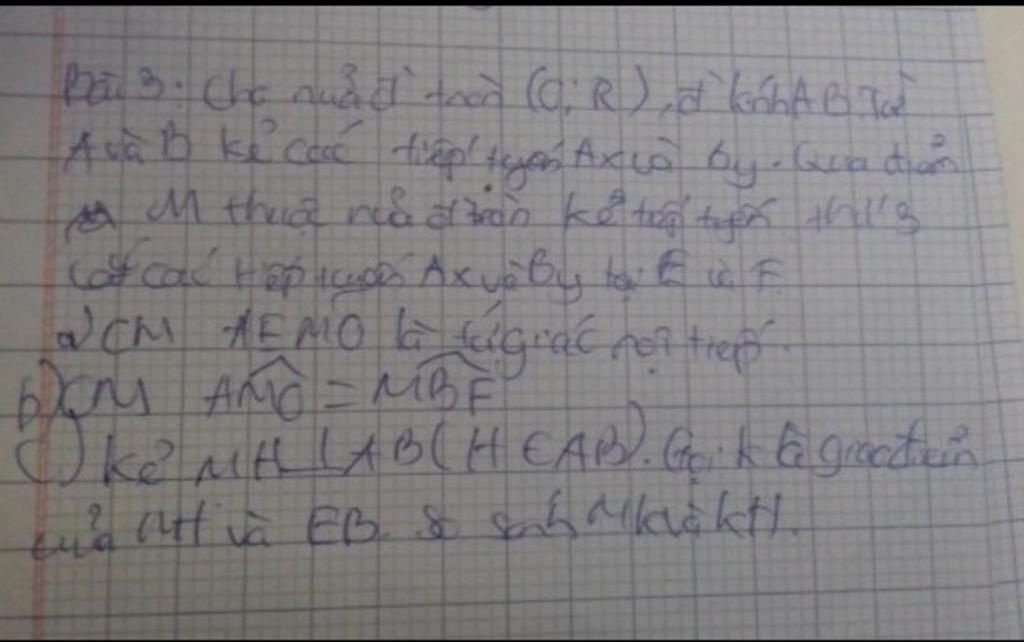 Bài 3: Cho nửa đ' tròn (O; R), đ' kính AB. Từ
A và B kẻ các tiếp tuyến Ax và By. Qua điểm
M thuộc nửa đ' tròn kẻ tiếp tuyến thứ 3
cắt các tiếp tuyến Ax và By tại E và F
a) CM AEMO là tứ giác nội tiếp.
b) CM \widehat{AMO} = \widehat{MBF}
c) Kẻ MH ⊥ AB (H ∈ AB). Gọi K là giao điểm
của MH và EB. So sánh MK và KH.